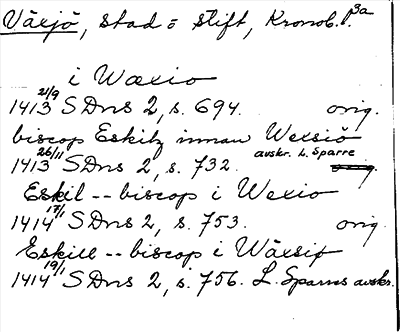 Växjö, stad o stift, Kronob. l. 3a
i Wæxio
1413 21/9 SDns 2, s. 694. orig.
biscop Eskilz innan Wexsiö
1413 26/11 SDns 2, s. 732. avskr. L. Sparre
Eskil -- biscop i Wexio
1414 17/1 SDns 2, s. 753. orig.
Eskill -- biscop i Wäxsiø
1414 19/1 SDns 2, s. 756. L. Sparres avskr.